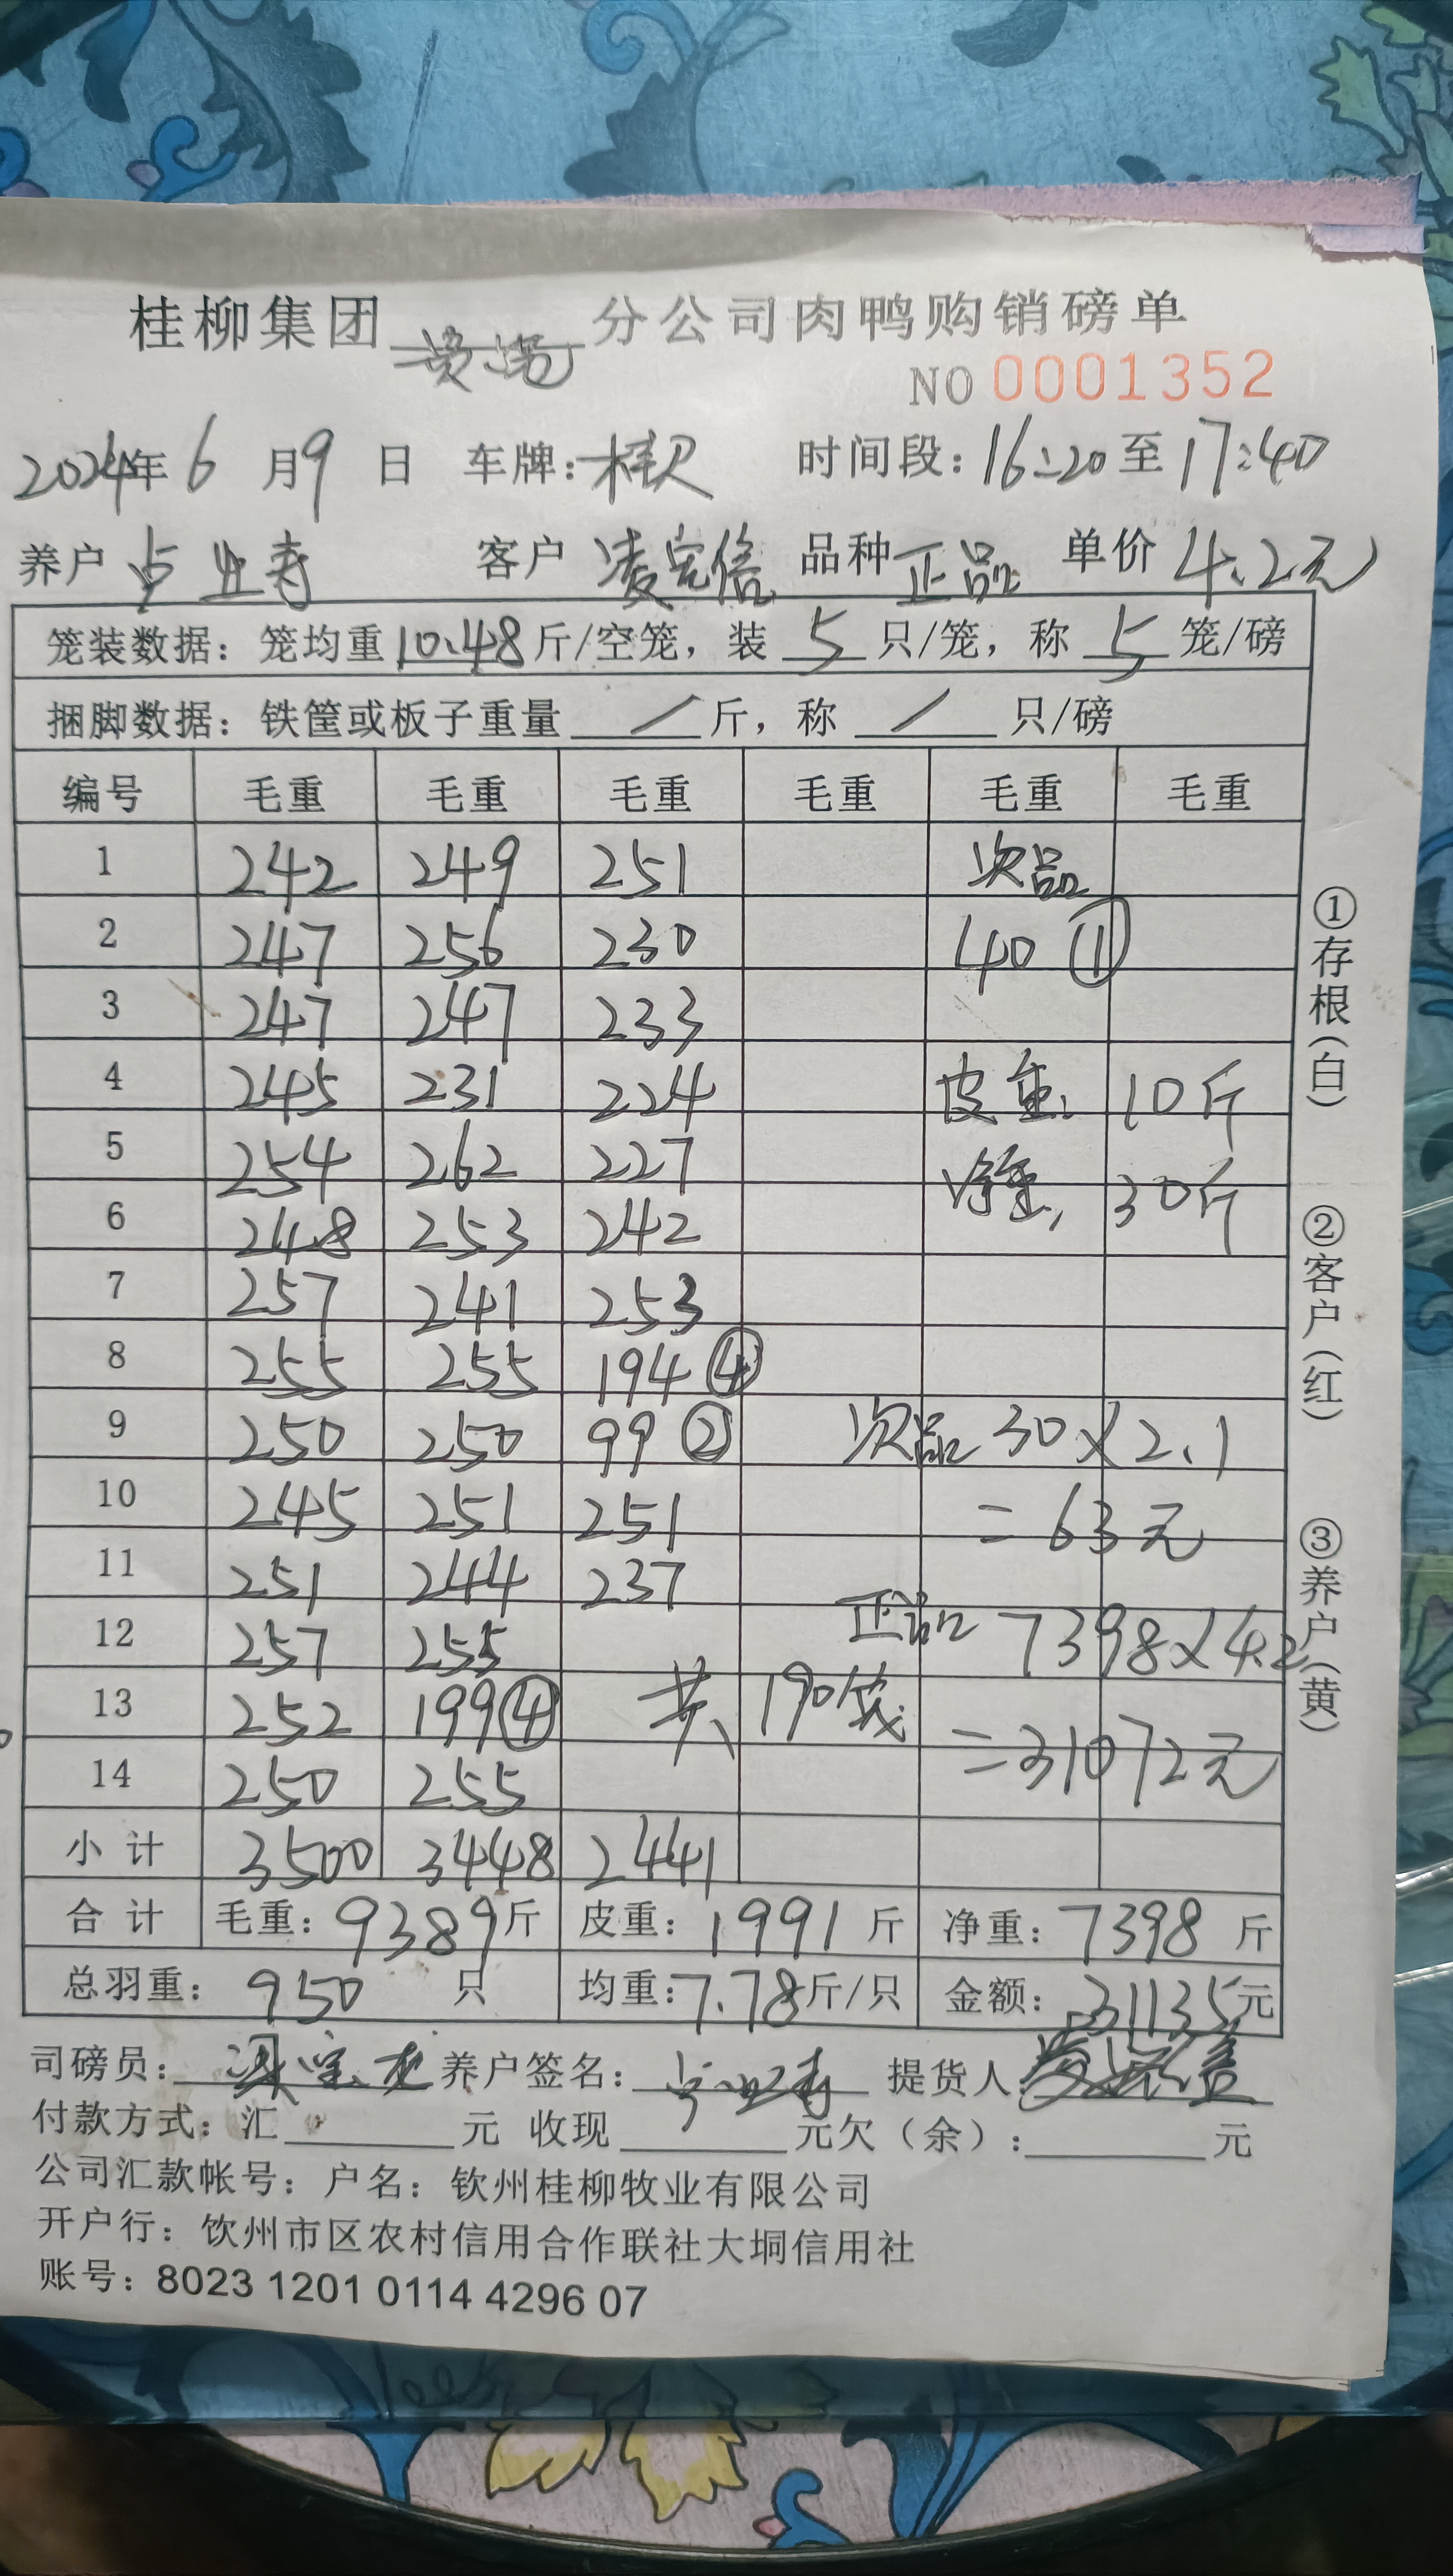 桂柳集团 分公司肉鸭购销磅单
NO 0001352
2024年6月9日 车牌: 时间段:16:20至17:40
养户 卢业寿 客户 凌宗信 品种 正品 单价 4.2元
笼装数据: 笼均重10.48斤/空笼, 装 5 只/笼, 称 5 笼/磅
捆脚数据: 铁筐或板子重量 / 斤, 称 / 只/磅
编号 毛重 毛重 毛重 毛重 毛重 毛重
1 242 249 251 次品
2 247 256 230 40 ①
3 247 247 233
4 245 231 224 皮重: 10斤
5 254 262 227 净重: 30斤
6 248 253 242
7 257 241 253
8 255 255 194 ④
9 250 250 99 ② 次品 30×2.1
10 245 251 251 =63元
11 251 244 237
12 257 255 正品 7398×4.2
13 252 199④ 共 190笼
14 250 255 =31072元
小计 3500 3448 2441
合计 毛重: 9389斤 皮重: 1991斤 净重: 7398斤
总羽重: 950 只 均重:7.78斤/只 金额: 31135元
司磅员: 养户签名: 卢业寿 提货人: 凌宗信
付款方式: 汇 元 收现 元欠(余): 元
公司汇款帐号: 户名: 钦州桂柳牧业有限公司
开户行: 钦州市区农村信用合作联社大垌信用社
账号: 8023 1201 0114 4296 07
①存根(白)
②客户(红)
③养户(黄)